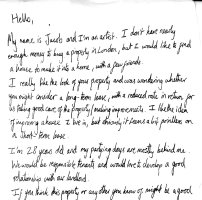 Hello,
My name is Jacob and I'm an artist. I don't have nearly
enough money to buy a property in London, but I would like to find
a house to make it into a home, with a few friends.
I really like the look of your property and was wondering whether
you might consider a long-term lease, with a reduced rate in return, for
us taking good care of the property / making improvements. I like the idea
of improving a house I live in, but obviously it seems a big problem on
a short term lease
I'm 28 years old and my partying days are mostly behind me.
We would be responsible tenants and would love to develop a good
relationship with our landlord.
If you think this property or any other you know of might be a good